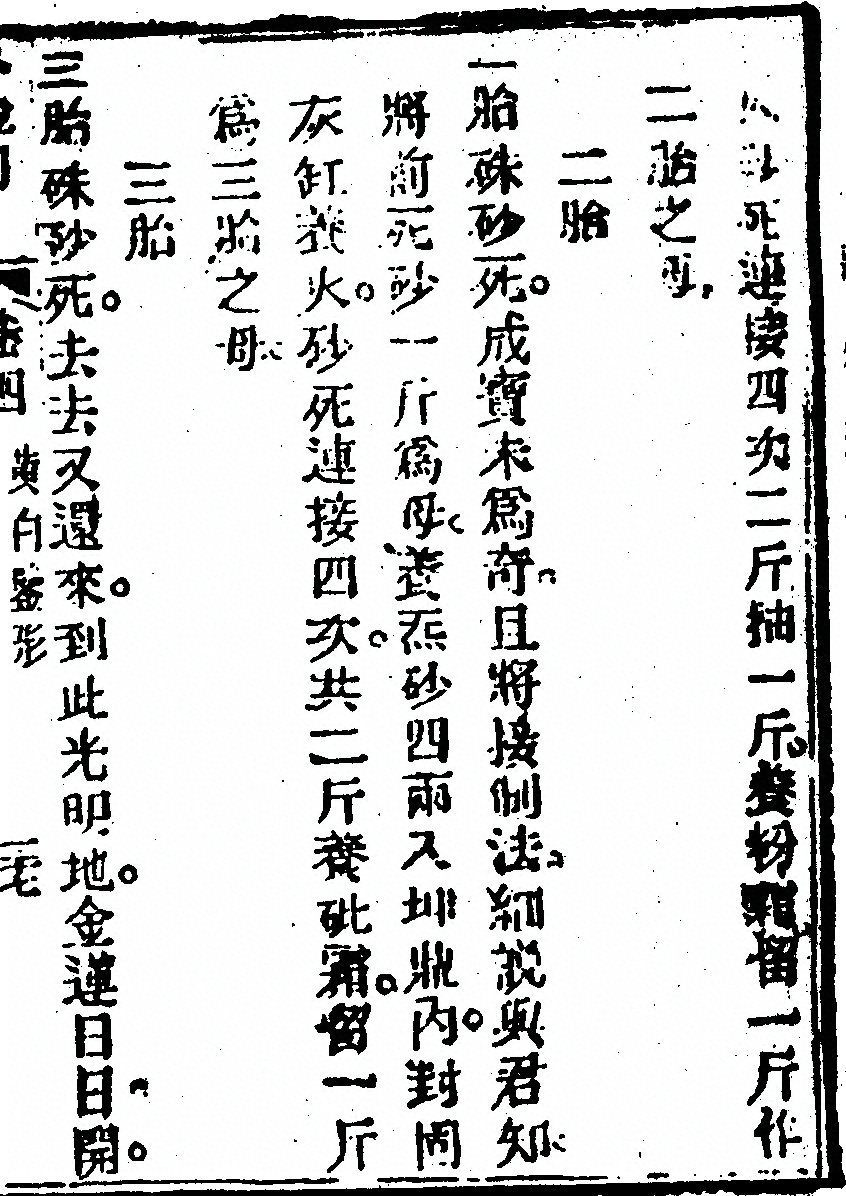 死連接四次二斤抽一斤養粉霜留一斤作
二胎之母
二胎
一胎硃砂死。成寶未為奇且將接制法細說與君知
將前死砂一斤為母養炁砂四兩入坩堝內。封固
灰缸養火。砂死連接四次。共二斤養砒霜。留一斤
為三胎之母
三胎
三胎硃砂死。去去又還來。到此光明地。金蓮日日開。
卷四 黃白鑒形